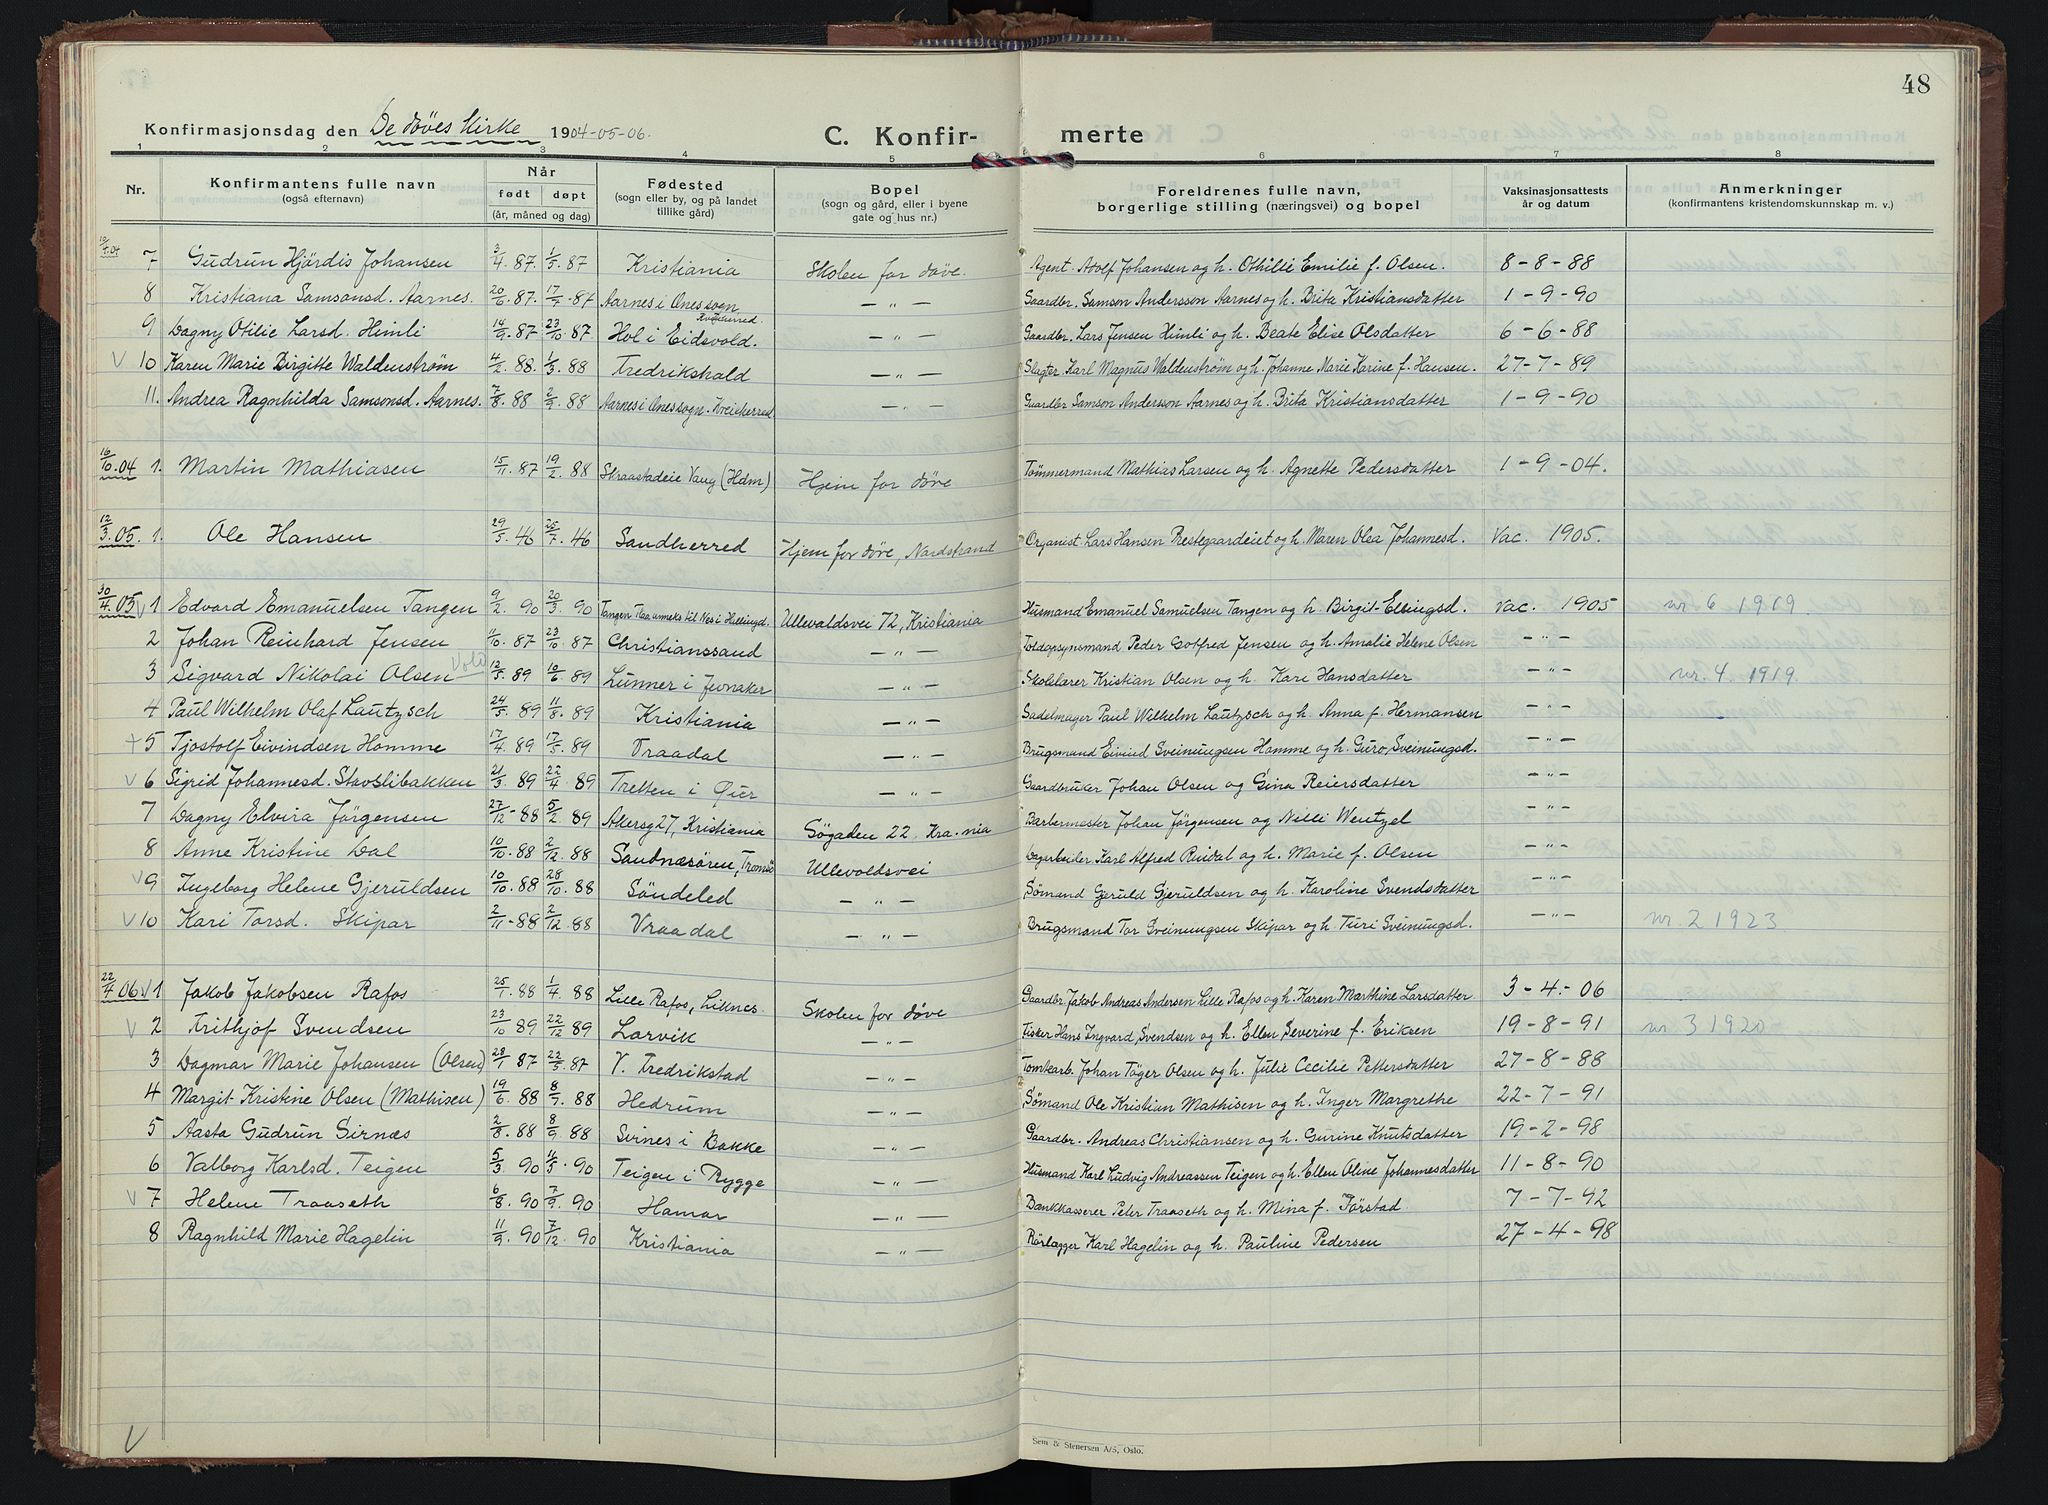 48
Konfirmasjonsdag den De døves kirke 1904-05-06.
C. Konfir-merte
1 2 3 4 5 6 7 8
Nr. Konfirmantens fulle navn (også efternavn) Når født døpt (år, måned og dag) Fødested (sogn eller by, og på landet tillike gård) Bopel (sogn og gård, eller i byene gate og hus nr.) Foreldrenes fulle navn, borgerlige stilling (næringsvei) og bopel Vaksinasjonsattests år og datum Anmerkninger (konfirmantens kristendomskunnskap m. v.)
10/4.04 7 Gudrun Hjördis Johansen 3/4 87. 1/5 87 Kristiania Skolen for døve. Agent. Adolf Johansen og h. Othilie Emilie f. Olsen. 8-8-88
8 Kristiana Samsonsd. Aarnes. 20/6 87. 17/7 87 Aarnes i Onessogn Kvikherred. — " — Gaardbr. Samson Andersson Aarnes og h. Brita Kristiansdatter 1-9-90
9 Dagny Otilie Larsd. Himli 14/9 87. 23/10 87 Hol i Eidsvold. — " — Gaardbr. Lars Jensen Himli og h. Beate Elise Olsdatter 6-6-88
V 10 Karen Marie Birgitte Waldenstrøm 4/2 88. 1/3 88 Fredrikshald — " — Slagter Karl Magnus Waldenstrøm og h. Johanne Marie Karine f. Hansen. 27-7-89
11. Andrea Ragnhilda Samsonsd. Aarnes. 7/8 88 2/9 88 Aarnes i Onessogn. — " — Gaardbr Samson Andersson Aarnes og h. Brita Kristiansdatter 1-9-90
16/10.04 1. Martin Mathiasen 15/11 87 19/2 88 Skraastadeie Vang (Hdm) Hjem for døve Tömmermand Mathias Larsen og h. Agnette Pedersdatter 1-9-04.
12/3.05. 1. Ole Hansen 29/5 46 26/7 46 Sandherred Hjem for døve, Nordstrand Organist. Lars Hansen Prestegaardeiet og h. Maren Olea Johannesd. Vac. 1905.
30/4.05 V 1 Edvard Emanuelsen Tangen 9/2 90 20/3 90 Tangen til Nes i Hallingd. Ullevaldsvei 72, Kristiania Husmand Emanuel Samuelsen Tangen og h. Birgit Ellingsd. Vac. 1905 nr. 6 1919.
2 Johan Reinhard Jensen 11/10 87 23/10 87 Christianssand — " — Toldopsynsmand Peder Gotfred Jensen og h. Amalie Helene Olsen — " —
3 Sigvard Nikolai Olsen 12/5 89 10/6 89 Lunner i Jevnaker — " — Skolelærer Kristian Olsen og h. Kari Hansdatter — " — nr. 4. 1919.
4 Paul Wilhelm Olaf Lautzsch 24/5 89 11/8 89 Kristiania — " — Sadelmager Paul Wilhelm Lautzsch og h. Anna f. Hermansen — " —
+ 5 Tjostolf Eivindsen Homme 17/4 89 17/5 89 Vraadal — " — Brugsmand Eivind Sveinungsen Homme og h. Guro Sveinungsd. — " —
V 6 Sigrid Johannesd. Stavslibakken 21/3 89 22/4 89 Tretten i Øier — " — Gaardbruker Johan Olsen og Gina Reiersdatter — " —
7 Dagny Elvira Jørgensen 27/12-88 5/2 89 Akersg 27, Kristiania Søgaden 22 Kra.nia Barbermester Johan Jørgensen og Nilli Wentzel — " —
8 Anne Kristine Dal 10/10 88 2/12 88 Sandnæsören, Tromsö Ullevoldsvei Dagarbeider Karl Alfred Rudal og h. Marie f. Olsen — " —
V 9 Ingeborg Helene Gjeruldsen 10/10 88 28/10 88 Söndeled — " — Sømand Gjeruld Gjeruldsen og h. Karoline Svendsdatter — " —
V 10 Kari Torsd. Skipar 2/11-88 2/12 88 Vraadal — " — Brugsmand Tor Sveinungsen Skipar og h. Turi Sveinungsd. — " — nr. 2 1923
22/4 06 V 1 Jakob Jakobsen Rafos 25/1 88 1/4 88 Lille Rafos, Liknes. Skolen for døve Gaardbr Jakob Andreas Andersen Lille Rafos og h. Karen Marthine Larsdatter 3-4-06
V 2 Frithjof Svendsen 23/10 89 22/12 89 Larvik — " — Fisker Hans Ingvard Svendsen og h. Ellen Severine f. Eriksen 19-8-91 nr 3 1920
3 Dagmar Marie Johansen (Olsen) 28/1 87 22/5 87 V. Fredrikstad — " — Tomtearb. Johan Tøger Olsen og h. Julie Cecilie Pettersdatter 27-8-88
4 Margit Kristine Olsen (Mathisen) 19/6 88 8/7 88 Hedrum — " — Sømand Ole Kristian Mathisen og h. Inger Margrethe 22-7-91
5 Aasta Gudrun Sirnæs 2/8 88 8/9 88 Svines i Bakke — " — Gaardbr. Andreas Christiansen og h. Gurine Knutsdatter 19-2-98
6 Valborg Karlsd. Teigen 5/3 90 4/5 90 Teigen i Rygge — " — Husmand Karl Ludvig Andreassen Teigen og h. Ellen Oline Johannesdatter 11-8-90
V 7 Helene Traaseth 6/8 90 7/9 90 Hamar — " — Bankkasserer Peter Traaseth og h. Mina f. Törstad 7-7-92
8 Ragnhild Marie Hagelin 11/9 90 7/12 90 Kristiania — " — Rørlægger Karl Hagelin og h. Pauline Pedersen 27-4-98
V
Sem & Stenersen A/S, Oslo.